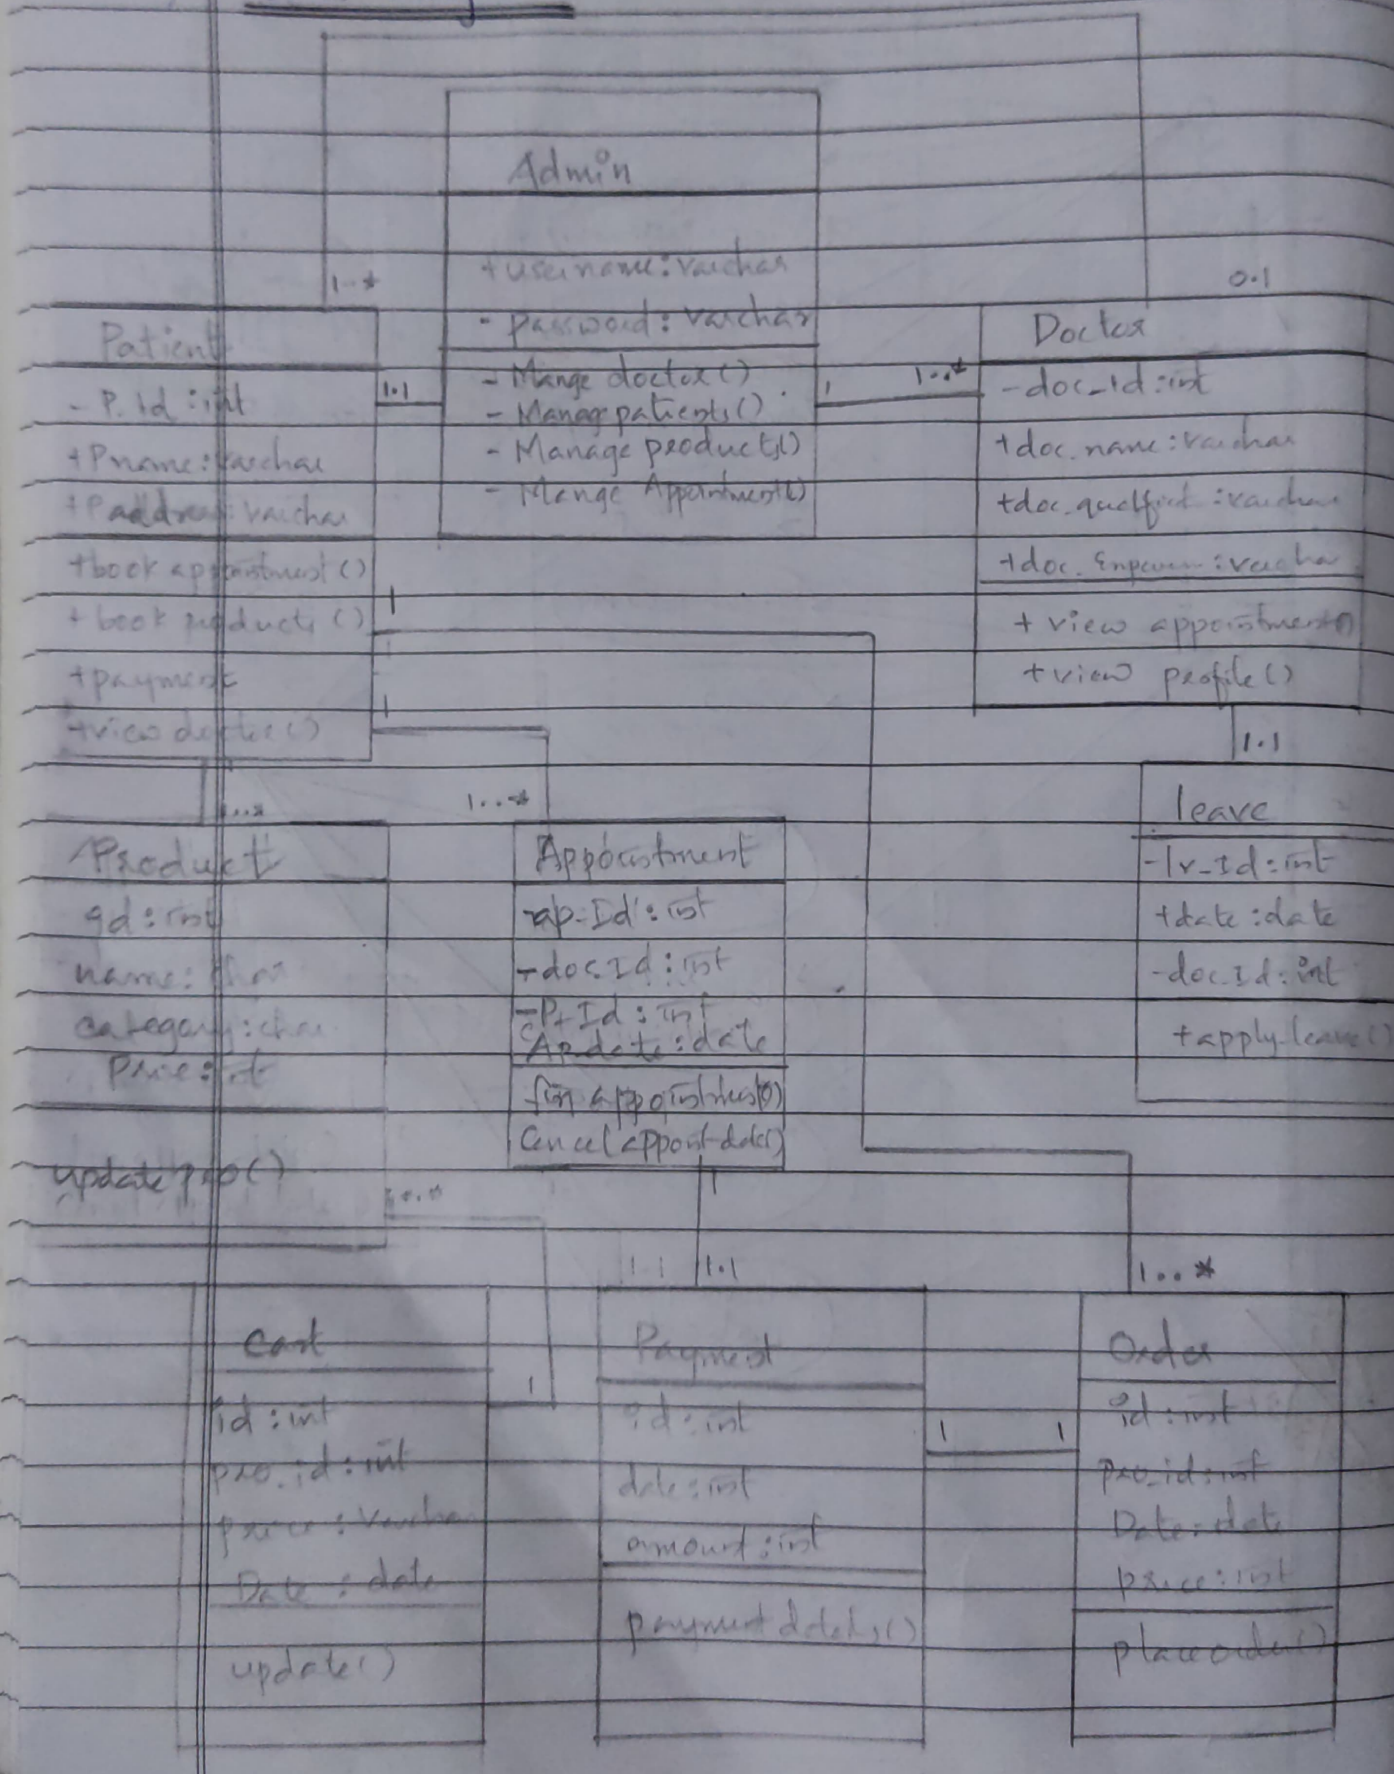 Admin
+username:varchar
- password: varchar
- Mange doctor()
- Manage patients()
- Manage products()
- Mange Appointment()
1..*
Patient
- P.Id :int
+Pname:varchar
+Paddress:varchar
+book appointment()
+ book products()
+payment
+view doctor()
1.1
1
1..*
0.1
Doctor
-doc_Id:int
+doc.name:varchar
+doc. :varchar
+doc. :varchar
+ view appointment()
+view profile()
1
1
1.1
1..*
1..*
Product
id:int
name: char
category:char
Price:int
update pro()
Appointment
-ap-Id:int
-doc.Id:int
-Pt Id:int
Ap.date:date
appointment()
Cancel appoint-date()
leave
-lv_Id:int
+date:date
-doc.Id:int
+apply-leave()
1
1.1
1.1
1..*
Cart
id:int
pro_id:int
price:varchar
Date:date
update()
1
Payment
id:int
date:int
amount:int
payment details()
1
1
Order
id:int
pro_id:int
Date:date
price:int
place order()